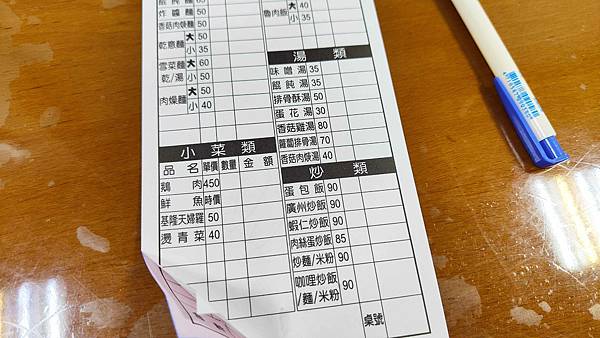 餛飩麵 65
炸醬麵 50
香菇肉焿麵 50
乾意麵 大 50
小 35
雪菜麵 大 60
乾/湯 小 50
肉燥麵 大 50
小 40
魯肉飯 大 40
小 35
湯類
味噌湯 35
餛飩湯 35
排骨酥湯 50
蛋花湯 30
香菇雞湯 80
蘿蔔排骨湯 70
香菇肉焿湯 40
小菜類
品名 單價 數量 金額
鵝肉 450
鮮魚 時價
基隆天婦羅 50
燙青菜 40
炒類
蛋包飯 90
廣州炒飯 90
蝦仁炒飯 90
肉絲蛋炒飯 85
炒麵/米粉 90
咖哩炒飯
/麵/米粉 90
桌號